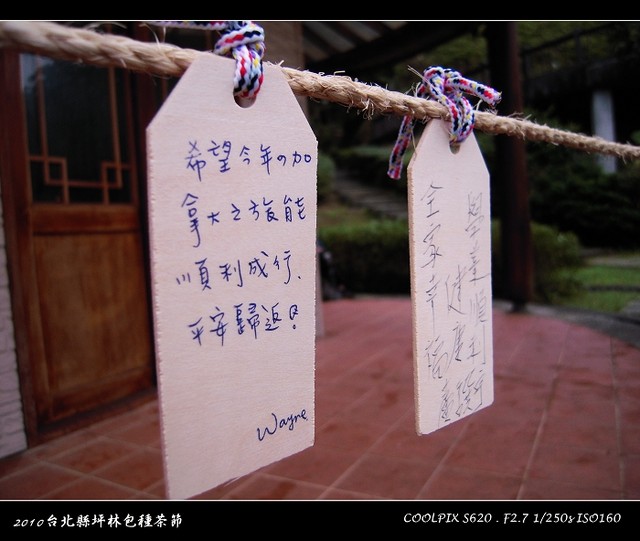 希望今年の加
拿大之旅能
順利成行、
平安歸返!
Wayne
全家幸福
健康
2010台北縣坪林包種茶節
COOLPIX S620 . F2.7 1/250s ISO160